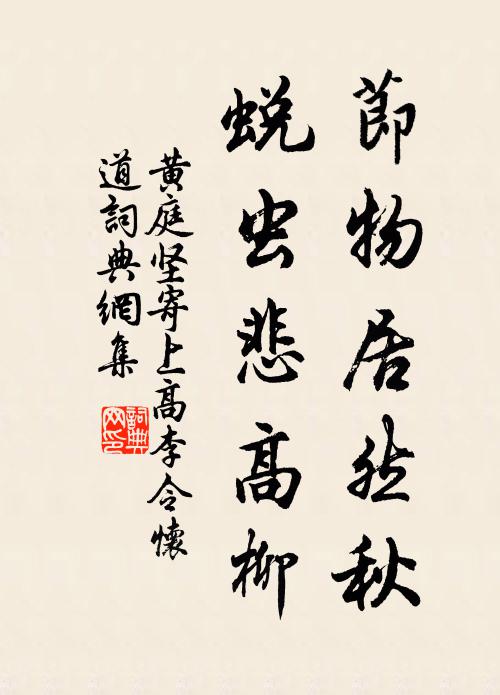 節物居然秋
蜕虫悲高柳
黄庭坚寄上高李令懷
道詞典網集
詞典
网印